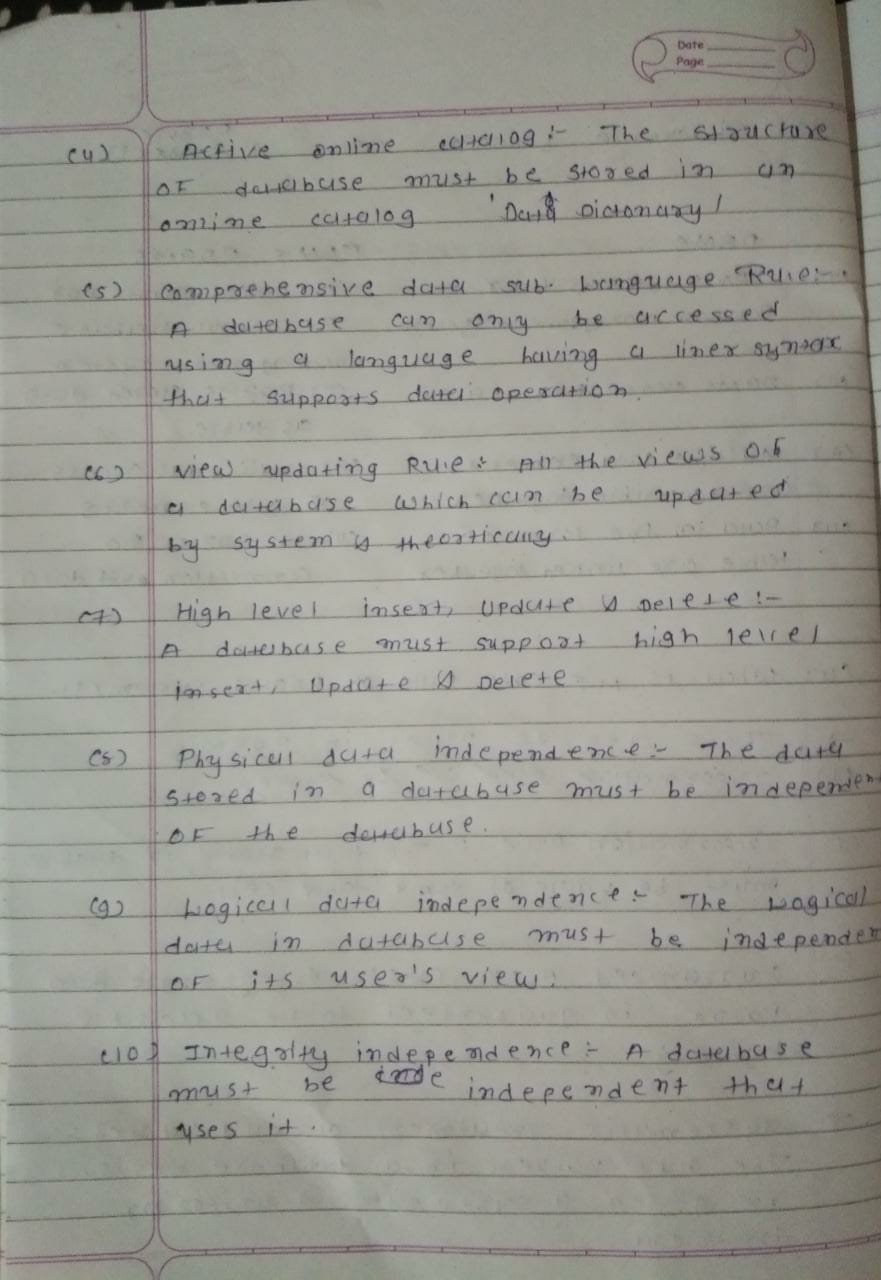 Date
Page
(4) Active online catalog :- The structure
OF database must be stored in an
online catalog 'Data Dictonary'
(5) Comprehensive data sub. Language Rule :-
A database can only be accessed
using a language having a liner syntax
that supports data operation.
(6) View updating Rule : All the views of
a database which can be updated
by system & theorticaly.
(7) High level insert, Update & Delete :-
A database must support high level
insert, Update & Delete
(8) Physical data independence :- The data
stored in a database must be independen
OF the database.
(9) Logical data independence :- The Logical
data in database must be independen
OF its user's view.
(10) Integrity independence :- A database
must be independent that
uses it.